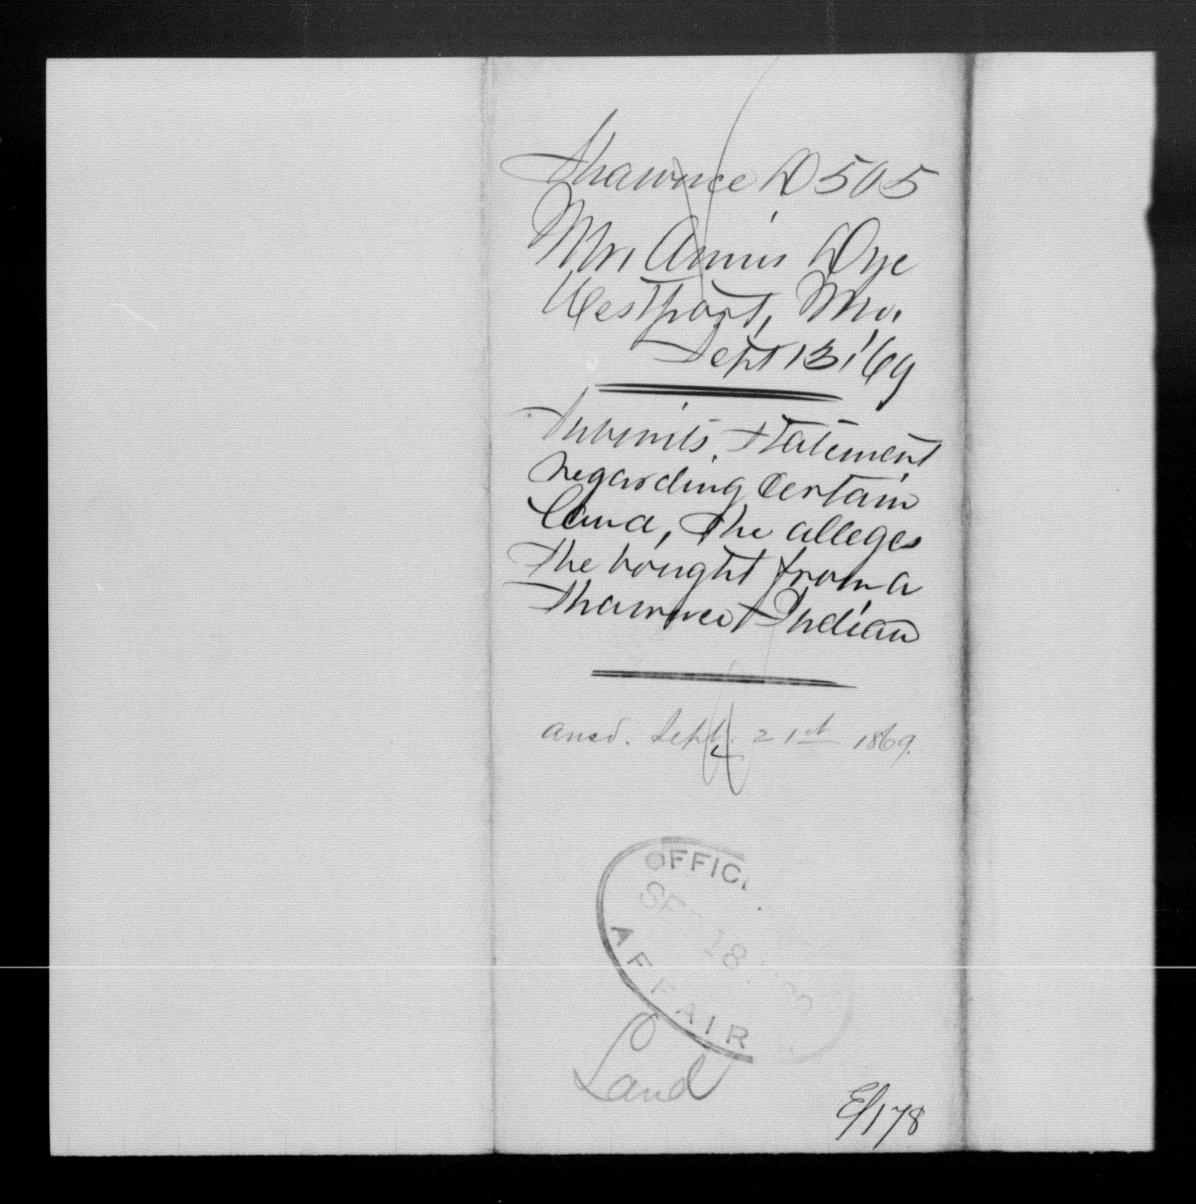 Shawnee D 505
Mrs Annis Dye
Westport, Mo.
Sept 13 '69
Submits Statement
regarding Certain
land, She alleges
She bought from a
Shawnee Indian
ansd. Sept. 21st 1869.
OFFIC
SEP 18
AFFAIR
Land
E/178